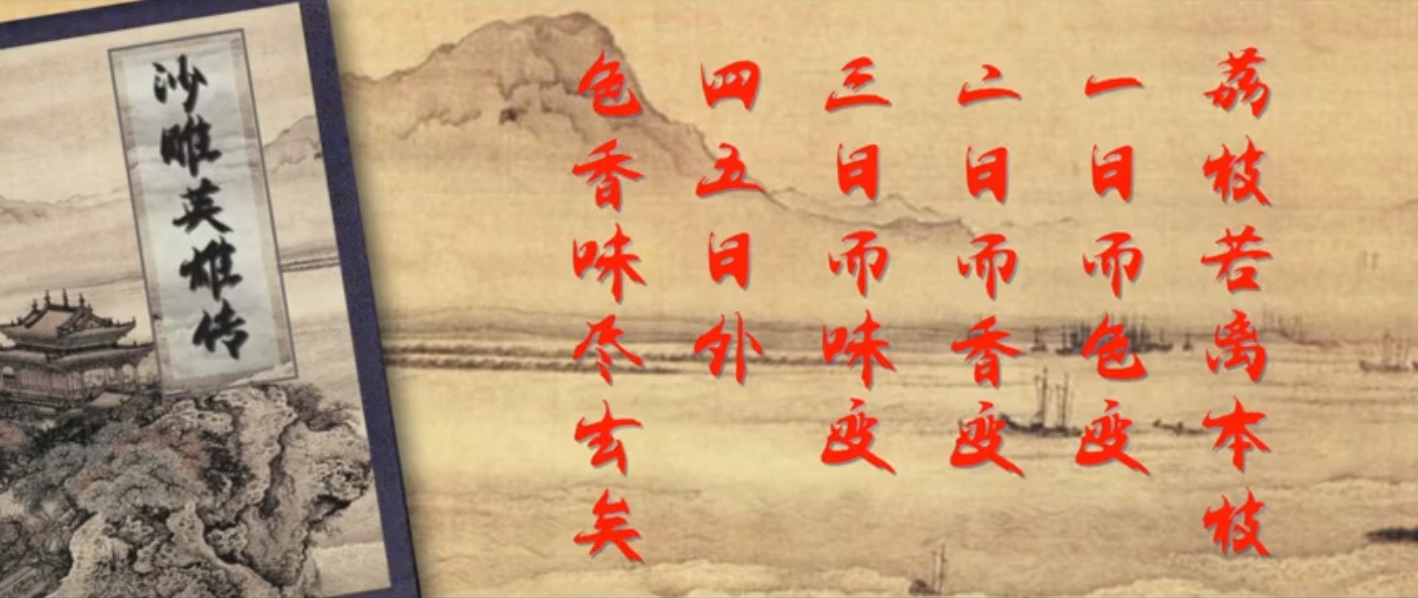 荔枝若离本枝
一日而色变
二日而香变
三日而味变
四五日外
色香味尽去矣
沙雕英雄传